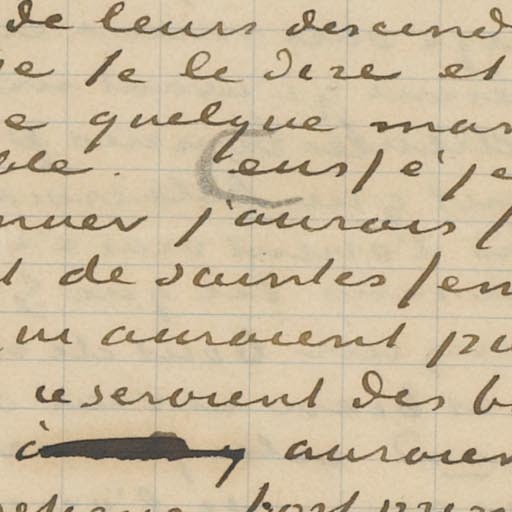 de leurs descend
te le dire et
e quelque mar
ble. Ceus
nuer j'aurais
t de saintes fem
qui auraient pu
ce seraient des b
à y auraien